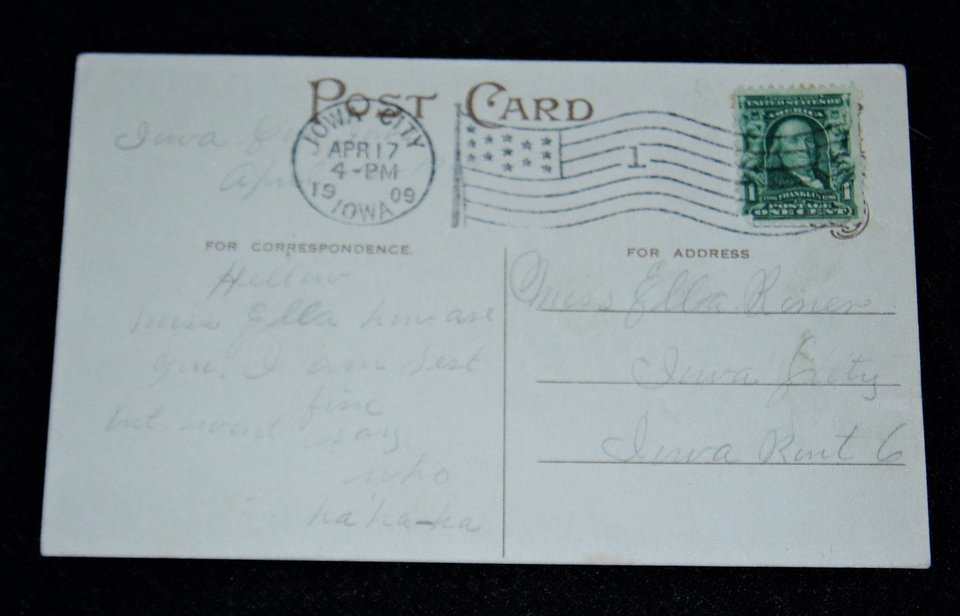 POST CARD
IOWA CITY
APR 17
4-PM
1909
IOWA
1
UNITED STATES OF
AMERICA
FRANKLIN
POSTAGE
1 1
ONE CENT
Iowa
FOR CORRESPONDENCE.
Hellow
Miss Ella how are
you. I am Jest
fine
but wont say
who
ha'ha-ha
FOR ADDRESS
Miss Ella
Iowa
Iowa Rout 6